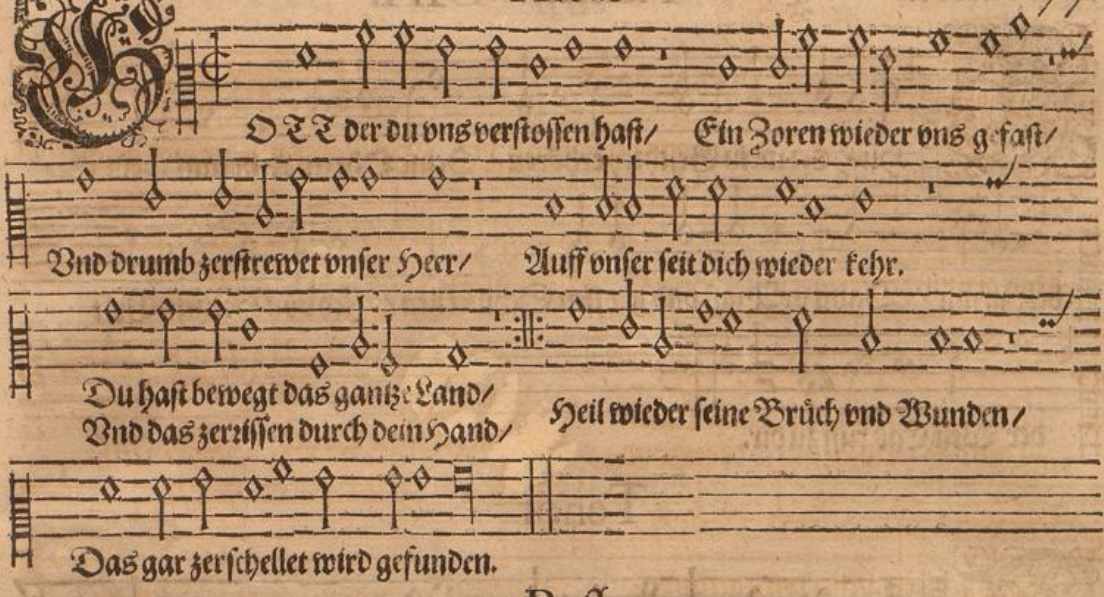 GOTT der du vns verstossen hast/ Ein Zoren wieder vns gefast/
Vnd drumb zerstrewet vnser Heer/ Auff vnser seit dich wieder kehr.
Du hast bewegt das gantze Land/
Vnd das zerrissen durch dein Hand/
Heil wieder seine Brüch vnd Wunden/
Das gar zerschellet wird gefunden.